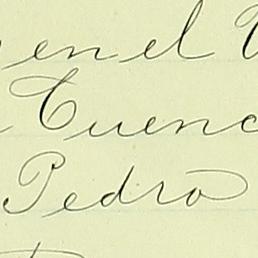 en el
Cuenc
Pedro